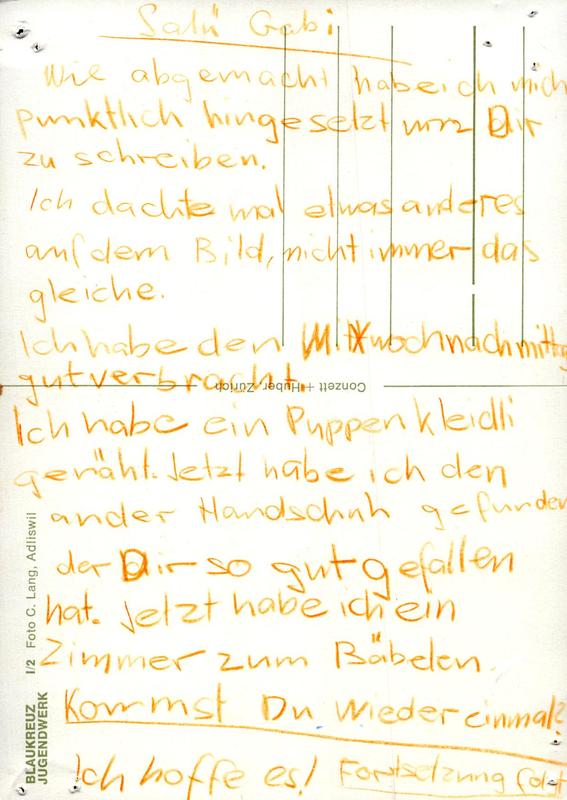 Salü Gabi
Wie abgemacht habe ich mich
punktlich hingesetzt um Dir
zu schreiben.
Ich dachte mal etwas anderes
auf dem Bild, nicht immer das
gleiche.
Ich habe den Mittwochnachmittg
gut verbracht.
Conzett + Huber, Zürich
Ich habe ein Puppenkleidli
genäht. Jetzt habe ich den
ander Handschuh gefunden
der Dir so gut gefallen
hat. Jetzt habe ich ein
Zimmer zum Bäbelen.
Kommst Du wieder einmal?
Ich hoffe es! Fortsetzung folgt
BLAUKREUZ
JUGENDWERK
1/2 Foto C. Lang, Adliswil